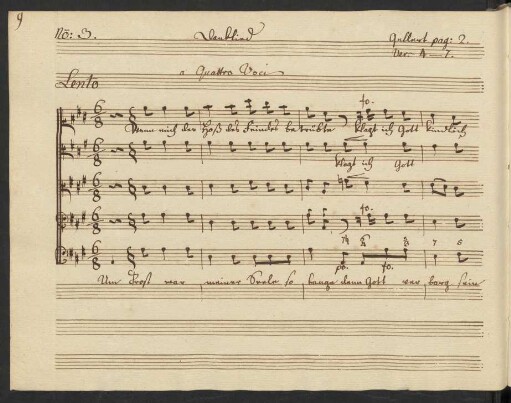 9
No: 3. Danklied Gellert pag: 2.
Ver: 4 – 7.
a Quattro Voci
Lento
fo.
Wenn mich der Haß des Feindes betrübte Klagt ich Gott kindlich
Klagt ich Gott
fo.
7 6
po. fo.
Um Trost war meiner Seele so bange denn Gott verbarg sein